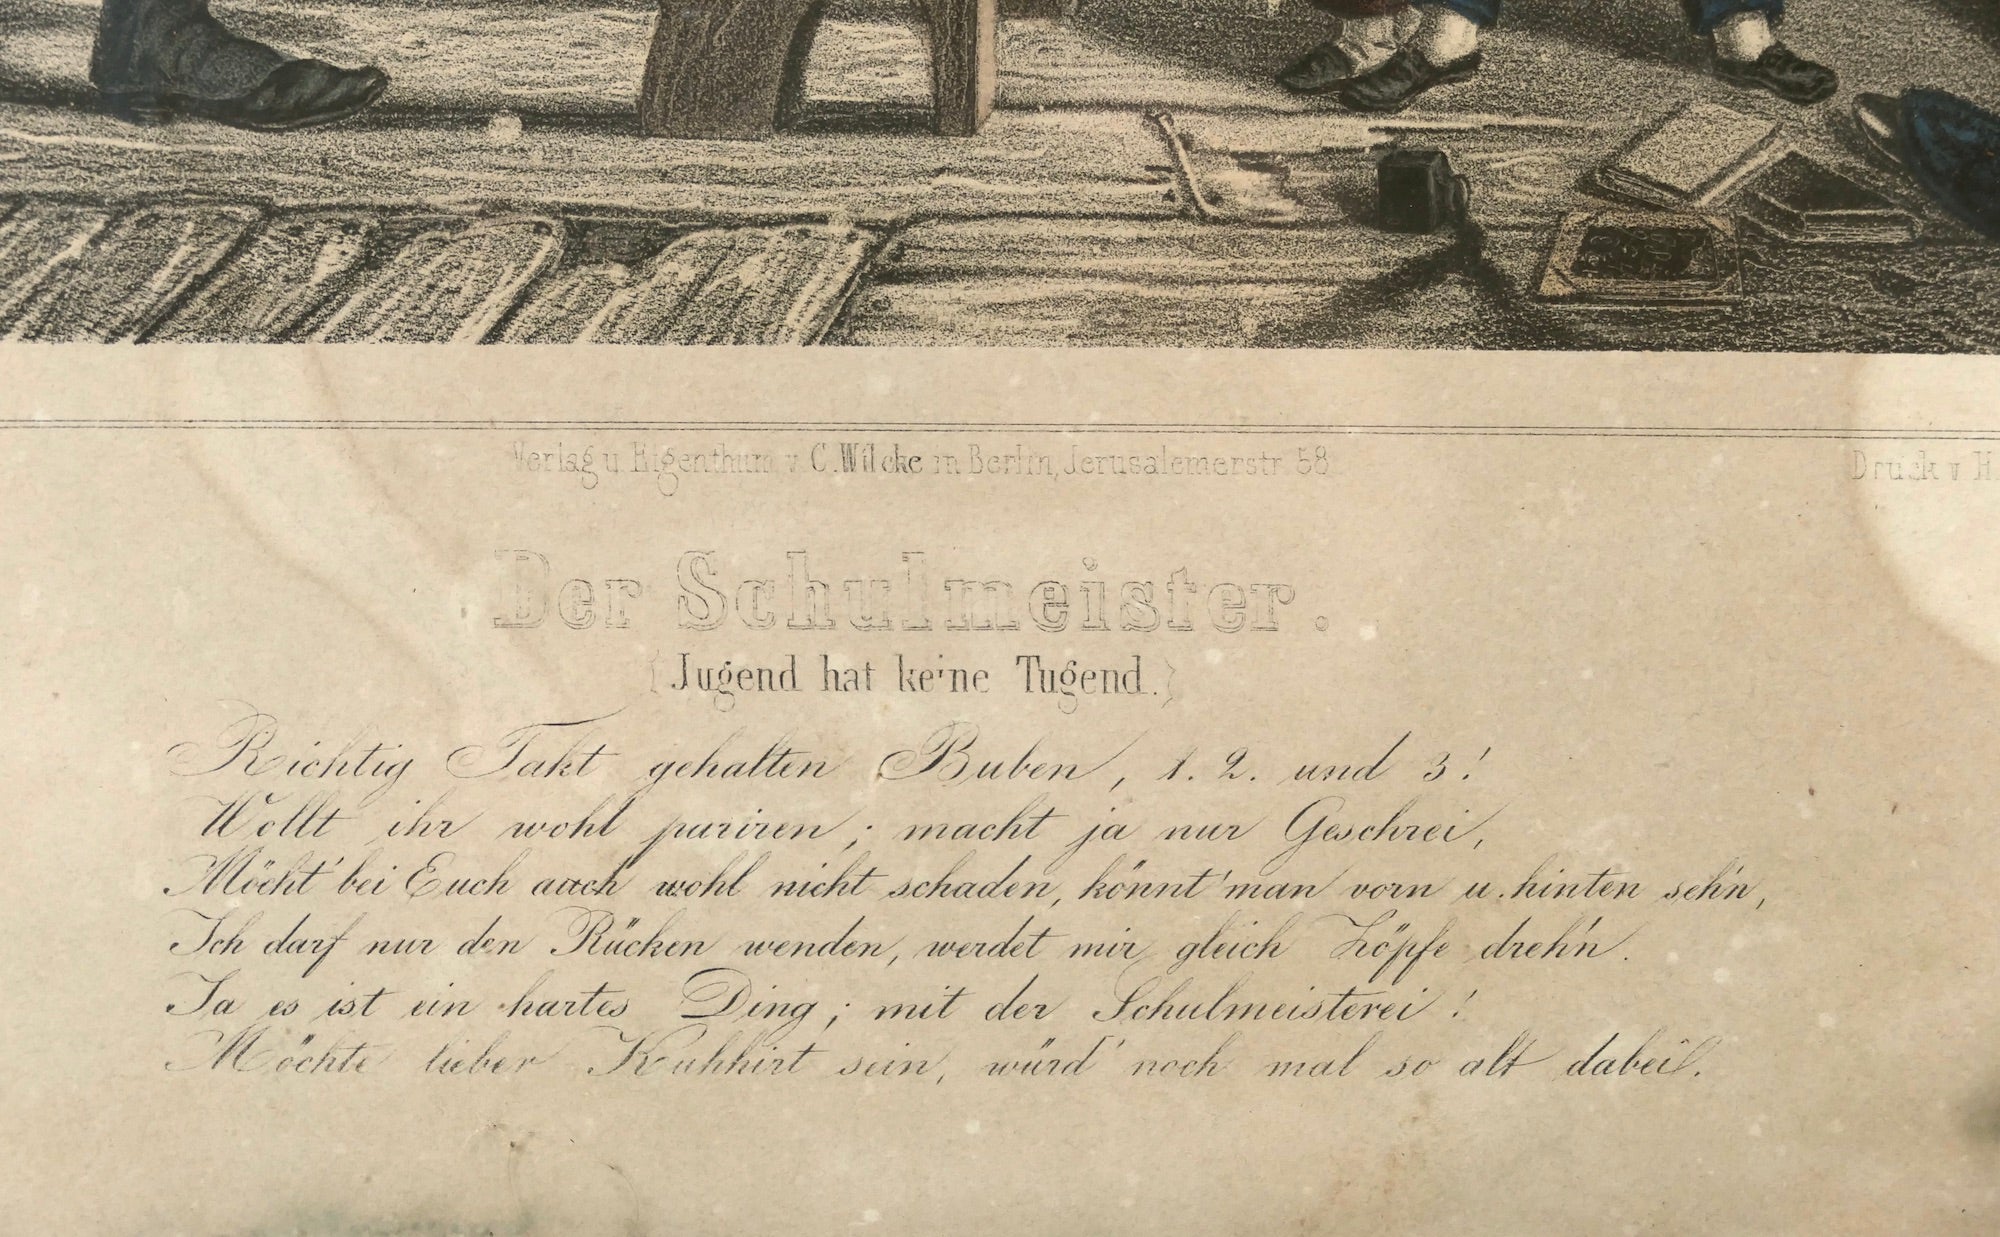 Verlag u. Eigenthum v. C. Wilcke in Berlin, Jerusalemerstr. 58
Druck v. H.
Der Schulmeister.
(Jugend hat keine Tugend.)
Richtig Takt gehalten Buben, 1. 2. und 3!
Wollt ihr wohl pariren; macht ja nur Geschrei,
Möcht' bei Euch auch wohl nicht schaden, könnt' man vorn u. hinten seh'n,
Ich darf nur den Rücken wenden, werdet mir gleich Zöpfe dreh'n.
Ja es ist ein hartes Ding; mit der Schulmeisterei!
Möchte lieber Kuhhirt sein, würd' noch mal so alt dabei!.